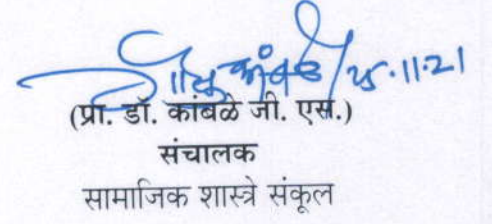 25.11.21
(प्रा. डॉ. कांबळे जी. एस.)
संचालक
सामाजिक शास्त्रे संकूल